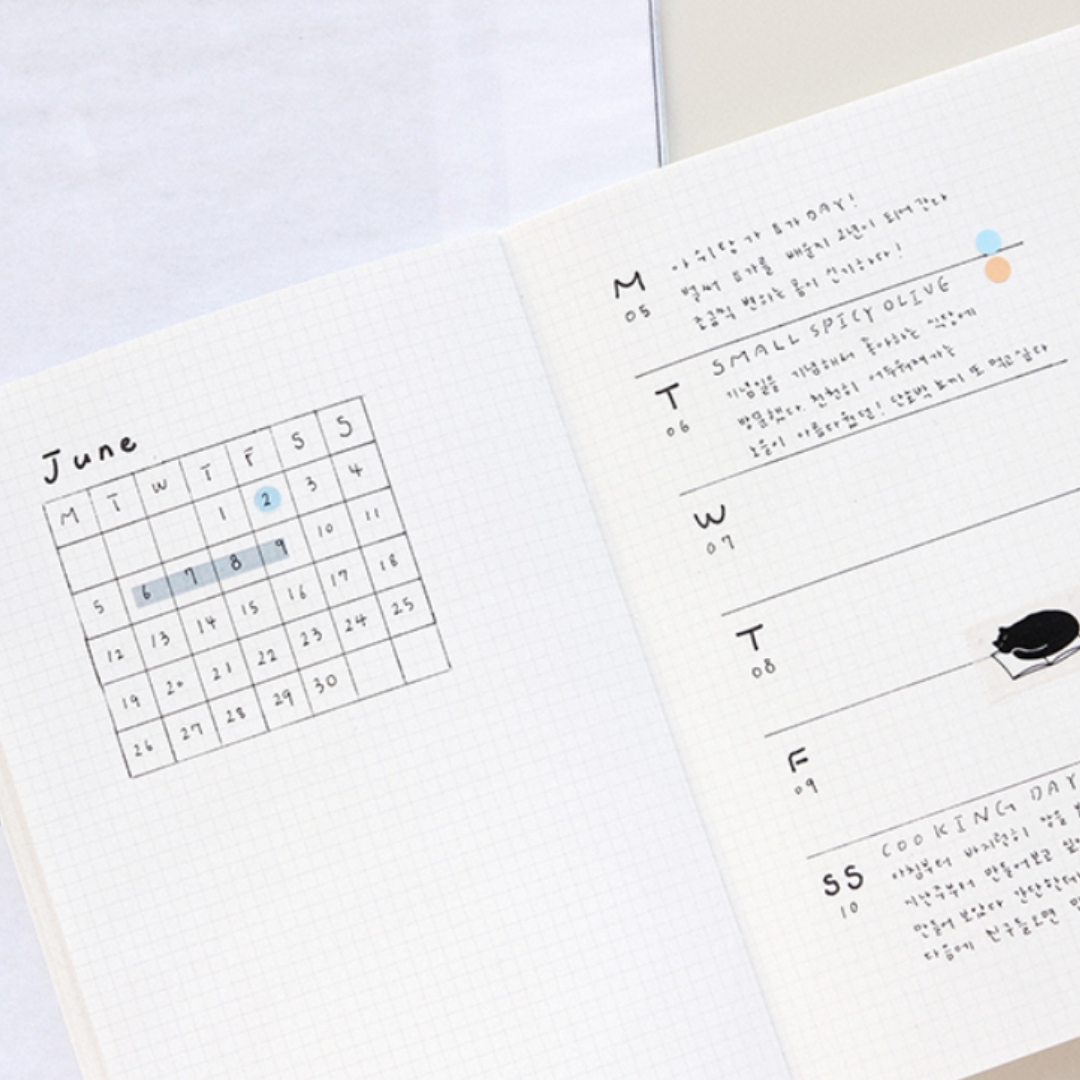 June
M T W T F S S
1 2 3 4
5 6 7 8 9 10 11
12 13 14 15 16 17 18
19 20 21 22 23 24 25
26 27 28 29 30
M
05
요가 DAY!
벌써 요가를 배운지 2년이 되어간다
조금씩 변하는 몸이 신기하다!
T
06
SMALL SPICY OLIVE
기념일을 기념해서 좋아하는 식당에
방문했다. 천천히 어두워져가는
노을이 아름다웠던! 단호박 뇨끼 또 먹고싶다
W
07
T
08
F
09
SS
10
COOKING DAY
아침부터 바지런히 장을
지난주부터 만들어보고
만들어 보았다 간단한데
다음에 친구들오면